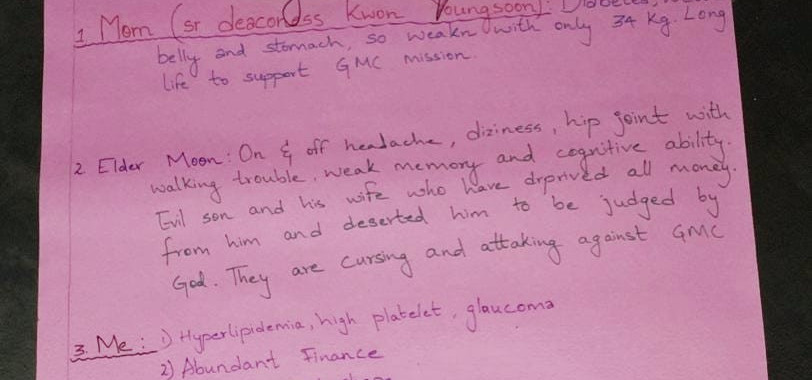 1 Mom (sr deaconess Kwon Youngsoon): Diabetes,
belly and stomach, so weakn with only 34 kg. Long
life to support GMC mission.
2. Elder Moon: On & off headache, diziness, hip joint with
walking trouble, weak memory and cognitive ability.
Evil son and his wife who have drprived all money.
from him and deserted him to be judged by
God. They are cursing and attaking against GMC
3. Me: 1) Hyperlipidemia, high platelet, glaucoma
2) Abundant Finance